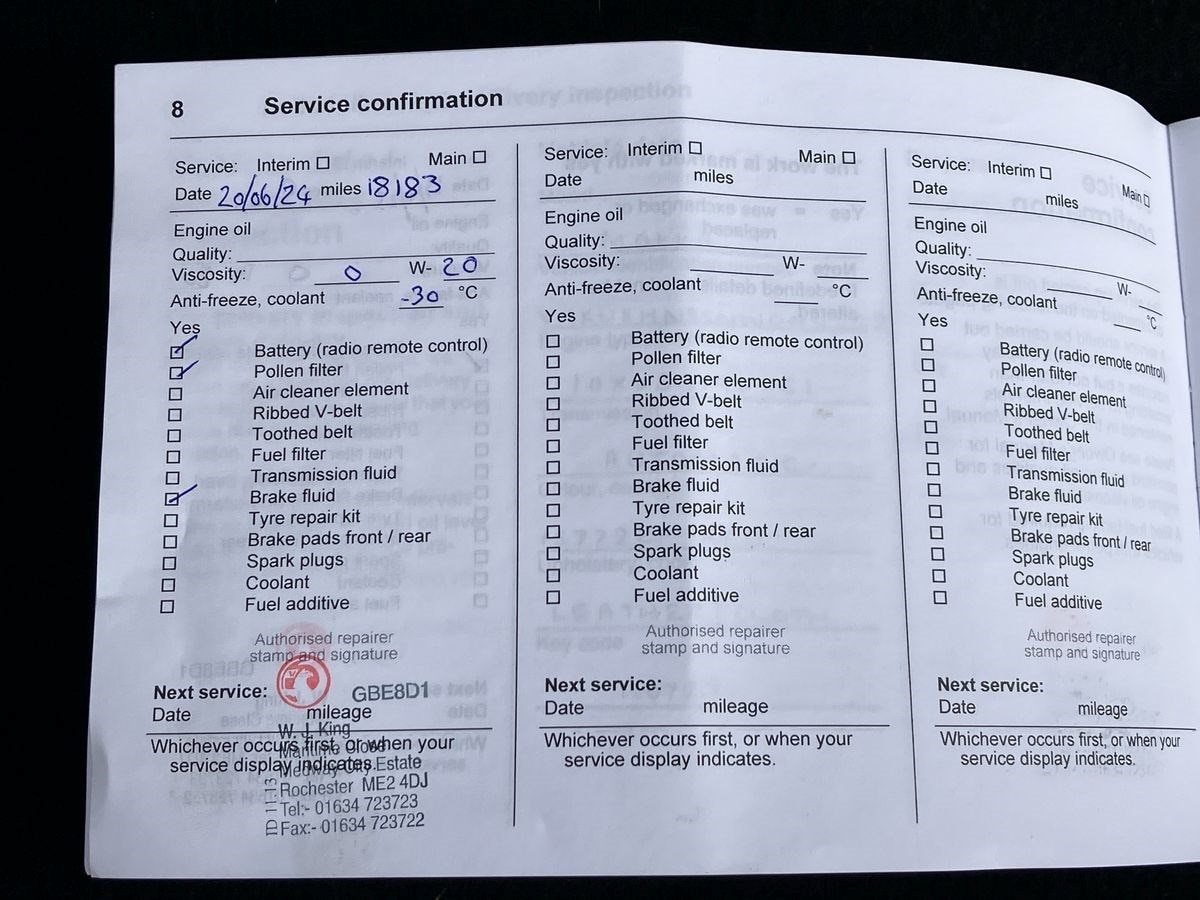 8 Service confirmation
Service: Interim Main
Date 20/06/24 miles 18183
Engine oil
Quality:
Viscosity: 0 W- 20
Anti-freeze, coolant -30 °C
Yes
Battery (radio remote control)
Pollen filter
Air cleaner element
Ribbed V-belt
Toothed belt
Fuel filter
Transmission fluid
Brake fluid
Tyre repair kit
Brake pads front / rear
Spark plugs
Coolant
Fuel additive
Authorised repairer
stamp and signature
Next service: GBE8D1
Date mileage
Whichever occurs first, or when your
service display indicates.
W. J. King
Maritime Close
Medway City Estate
Rochester ME2 4DJ
Tel:- 01634 723723
Fax:- 01634 723722
Service: Interim Main
Date miles
Engine oil
Quality:
Viscosity: W-
Anti-freeze, coolant °C
Yes
Battery (radio remote control)
Pollen filter
Air cleaner element
Ribbed V-belt
Toothed belt
Fuel filter
Transmission fluid
Brake fluid
Tyre repair kit
Brake pads front / rear
Spark plugs
Coolant
Fuel additive
Authorised repairer
stamp and signature
Next service:
Date mileage
Whichever occurs first, or when your
service display indicates.
Service: Interim Main
Date miles
Engine oil
Quality:
Viscosity: W-
Anti-freeze, coolant °C
Yes
Battery (radio remote control)
Pollen filter
Air cleaner element
Ribbed V-belt
Toothed belt
Fuel filter
Transmission fluid
Brake fluid
Tyre repair kit
Brake pads front / rear
Spark plugs
Coolant
Fuel additive
Authorised repairer
stamp and signature
Next service:
Date mileage
Whichever occurs first, or when your
service display indicates.